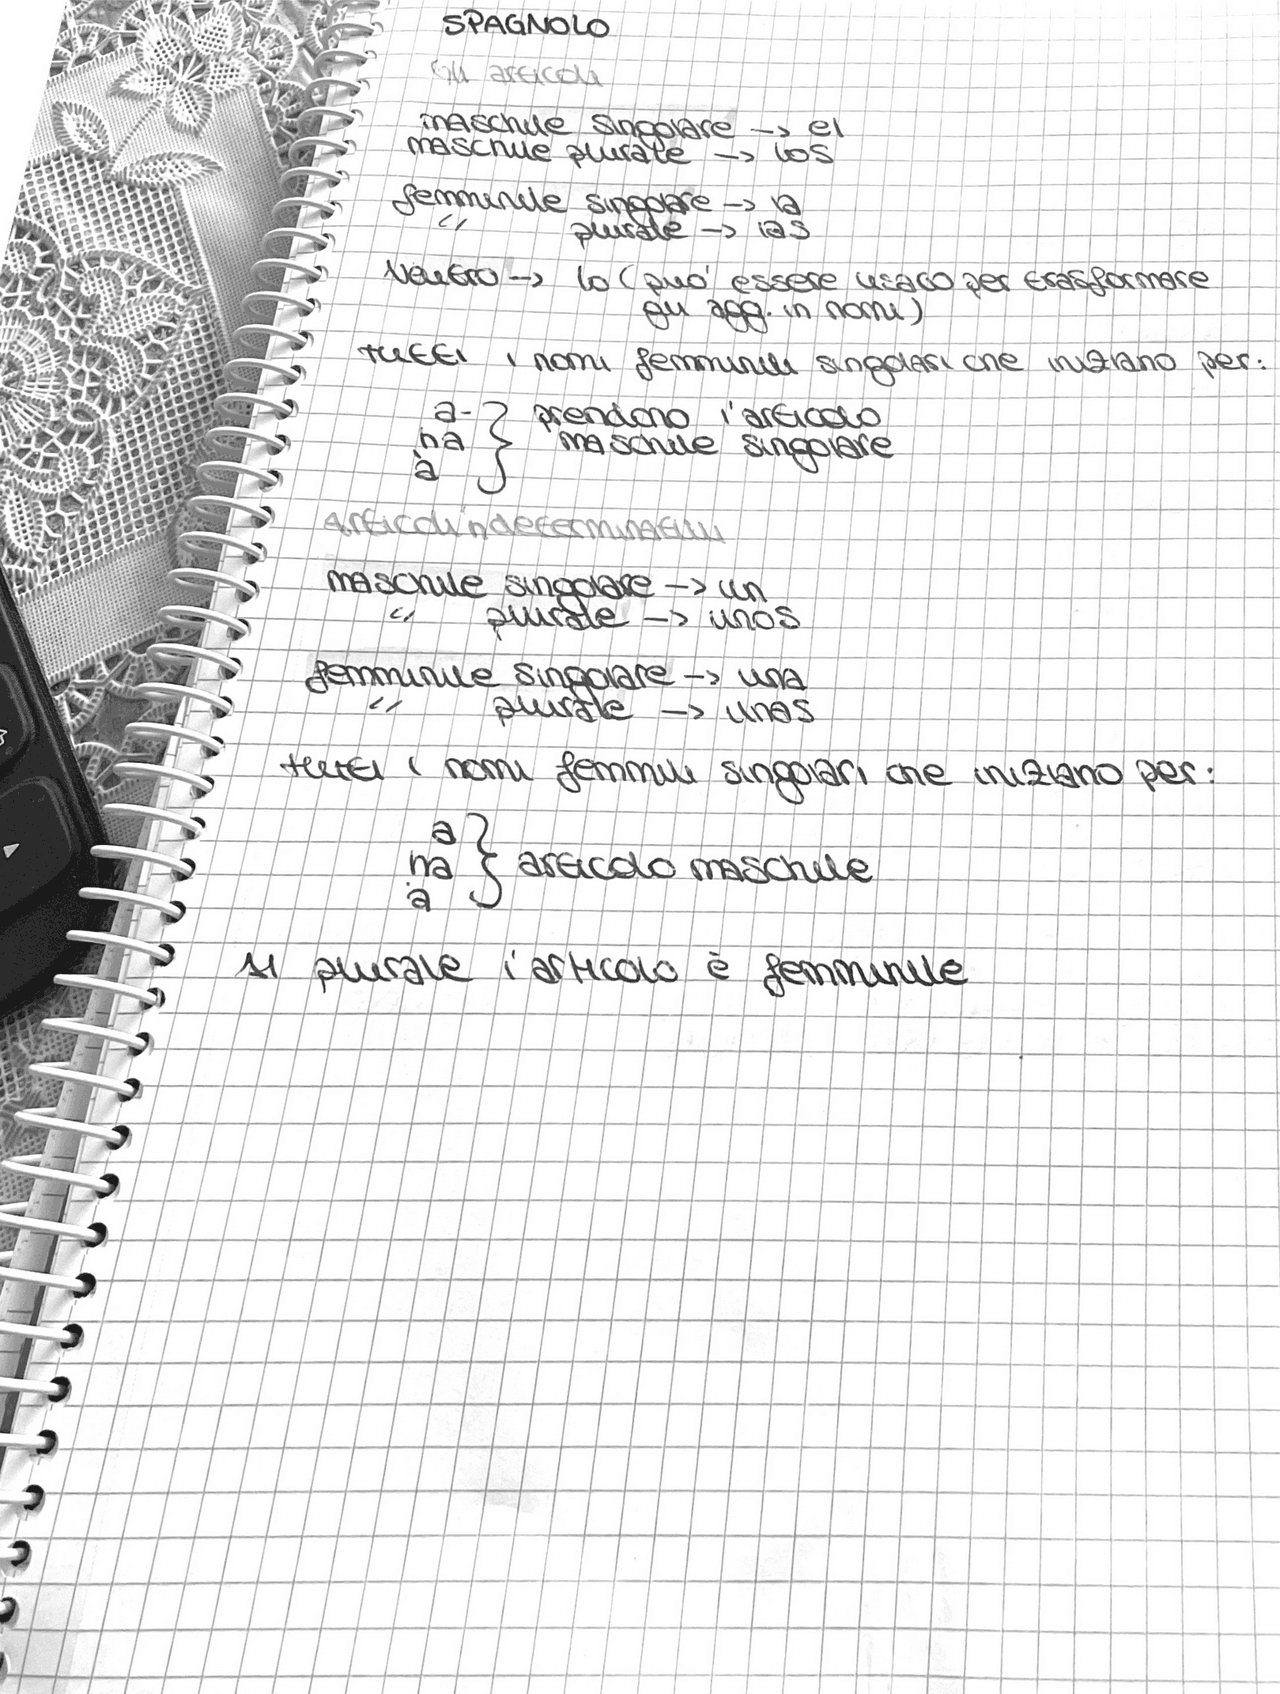 SPAGNOLO
Gli articoli
maschile singolare -> el
maschile plurale -> los
femminile singolare -> la
" plurale -> las
Neutro -> lo (può essere usato per trasformare
gli agg. in nomi)
tutti i nomi femminili singolari che iniziano per:
a- } prendono l'articolo
ha } maschile singolare
à
Articoli indeterminativi
maschile singolare -> un
" plurale -> unos
femminile singolare -> una
" plurale -> unas
tutti i nomi femmili singolari che iniziano per:
a
ha } articolo maschile
à
Al plurale l'articolo è femminile